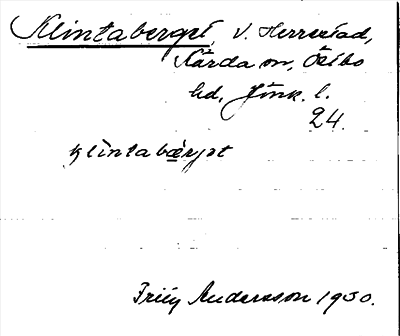 Klintaberget, V. Herrestad,
Kärda sn, Östbo
hd, Jönk. l.
24.
klìntabærjət
Andersson 1930.